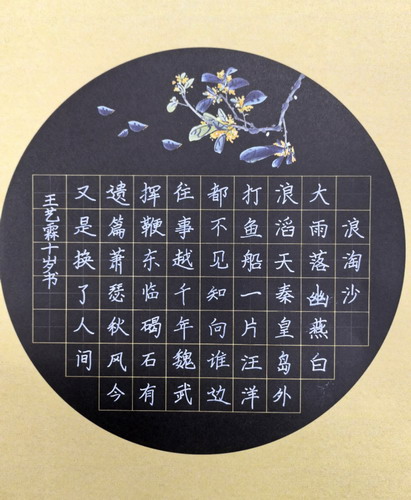 浪淘沙
大雨落幽燕白
浪滔天秦皇岛外
打鱼船一片汪洋
都不见知向谁边
往事越千年魏武
挥鞭东临碣石有
遗篇萧瑟秋风今
又是换了人间
王艺霖十岁书